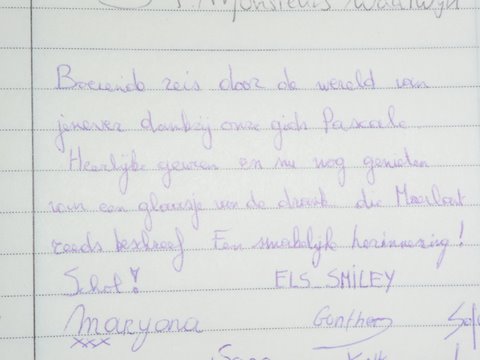 Monsieurs Waalwijk
Boeiende reis door de wereld van
jenever dankzij onze gids Pascale.
Heerlijke geuren en nu nog genieten
van een glaasje van de drank die Maarlout
reeds beschreef. Een smakelijke herinnering!
Schol!
ELS_SMILEY
Maryona
xxx
Gunther